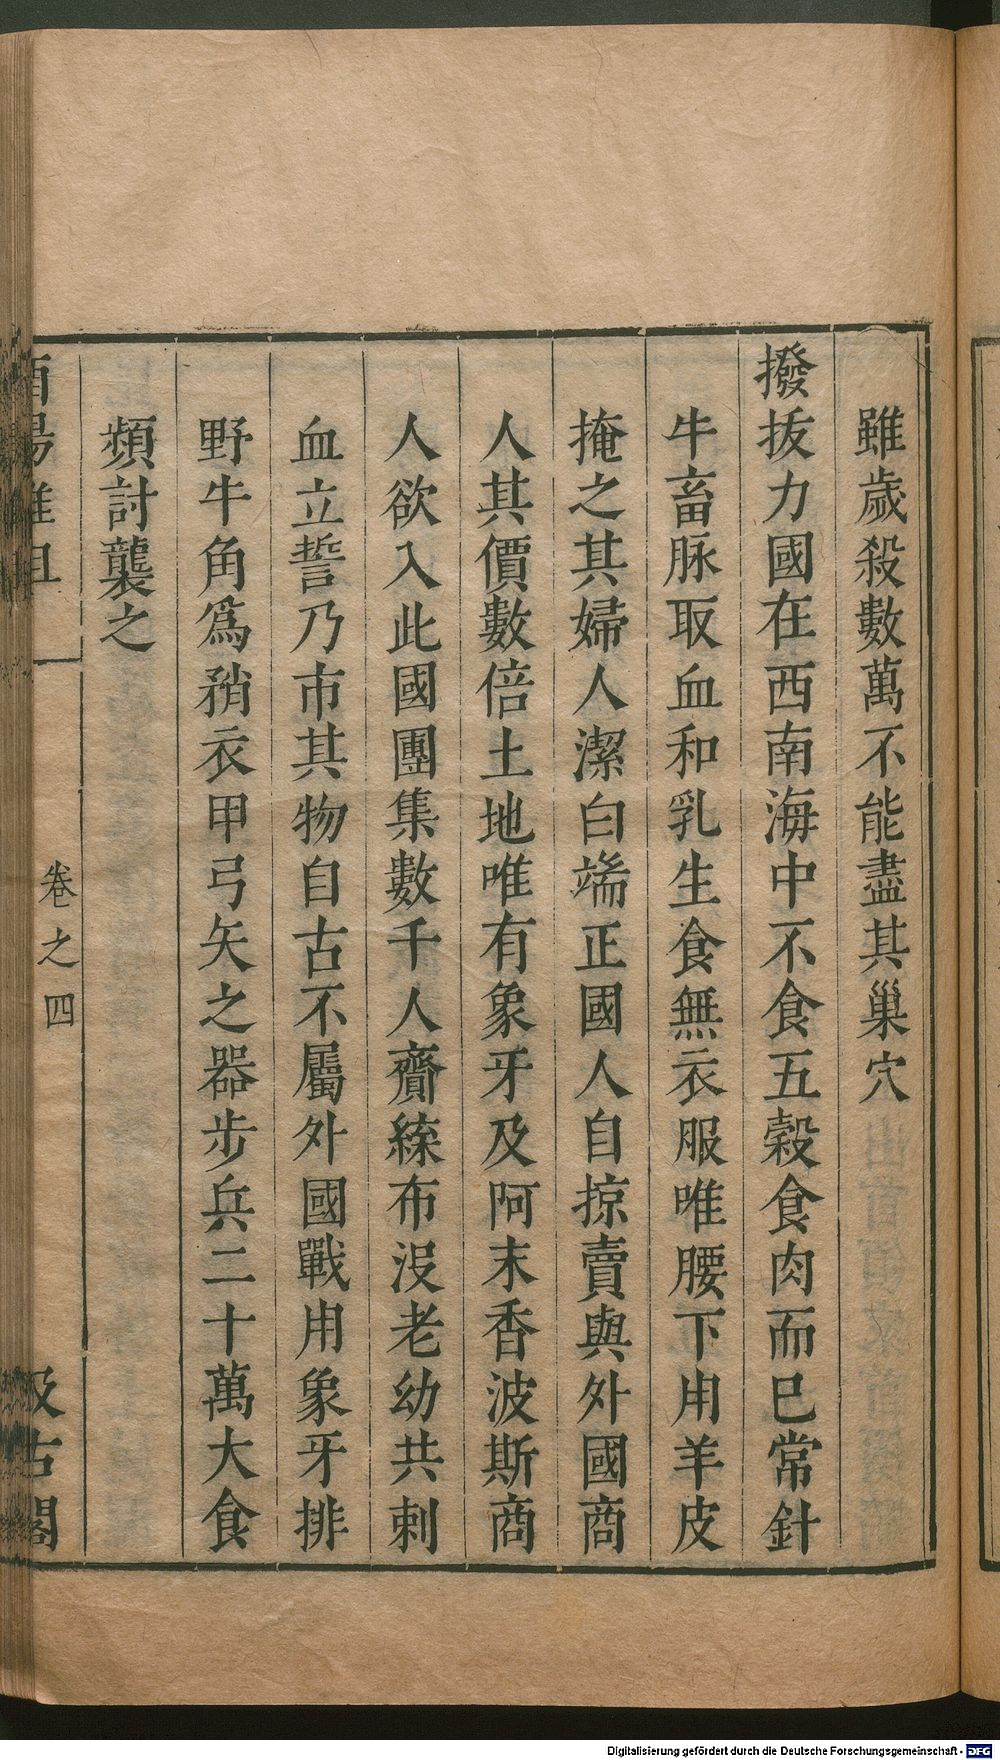 雖歲殺數萬不能盡其巢穴
撥拔力國在西南海中不食五穀食肉而巳常針
牛畜脉取血和乳生食無衣服唯腰下用羊皮
掩之其婦人潔白端正國人自掠賣與外國商
人其價數倍土地唯有象牙及阿末香波斯商
人欲入此國團集數千人齎緤布沒老幼共刺
血立誓乃市其物自古不屬外國戰用象牙排
野牛角爲矟衣甲弓矢之器步兵二十萬大食
頻討襲之
酉陽雜俎
卷之四
汲古閣
Digitalisierung gefördert durch die Deutsche Forschungsgemeinschaft - DFG